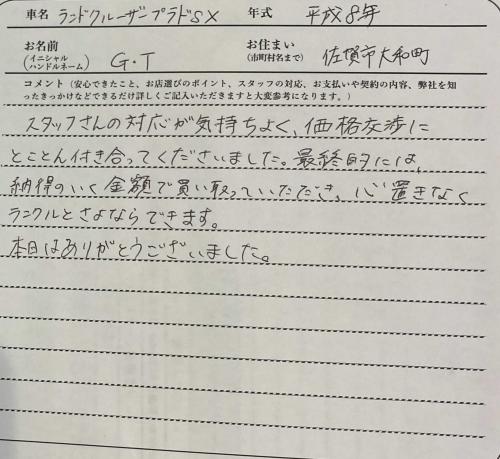 車名 ランドクルーザープラドSX 年式 平成8年
お名前 (イニシャル ハンドルネーム) G・T お住まい (市町村名まで) 佐賀市大和町
コメント(安心できたこと、お店選びのポイント、スタッフの対応、お支払いや契約の内容、弊社を知
ったきっかけなどできるだけ詳しくご記入いただきますと大変参考になります。)
スタッフさんの対応が気持ちよく、価格交渉に
とことん付き合ってくださいました。最終的には、
納得のいく金額で買い取っていただき、心置きなく
ランクルとさよならできます。
本日はありがとうございました。